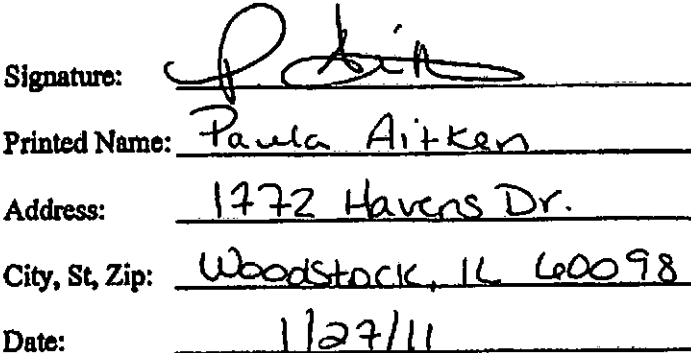 Signature: P Aitk
Printed Name: Paula Aitken
Address: 1772 Havens Dr.
City, St, Zip: Woodstock, IL 60098
Date: 1/27/11